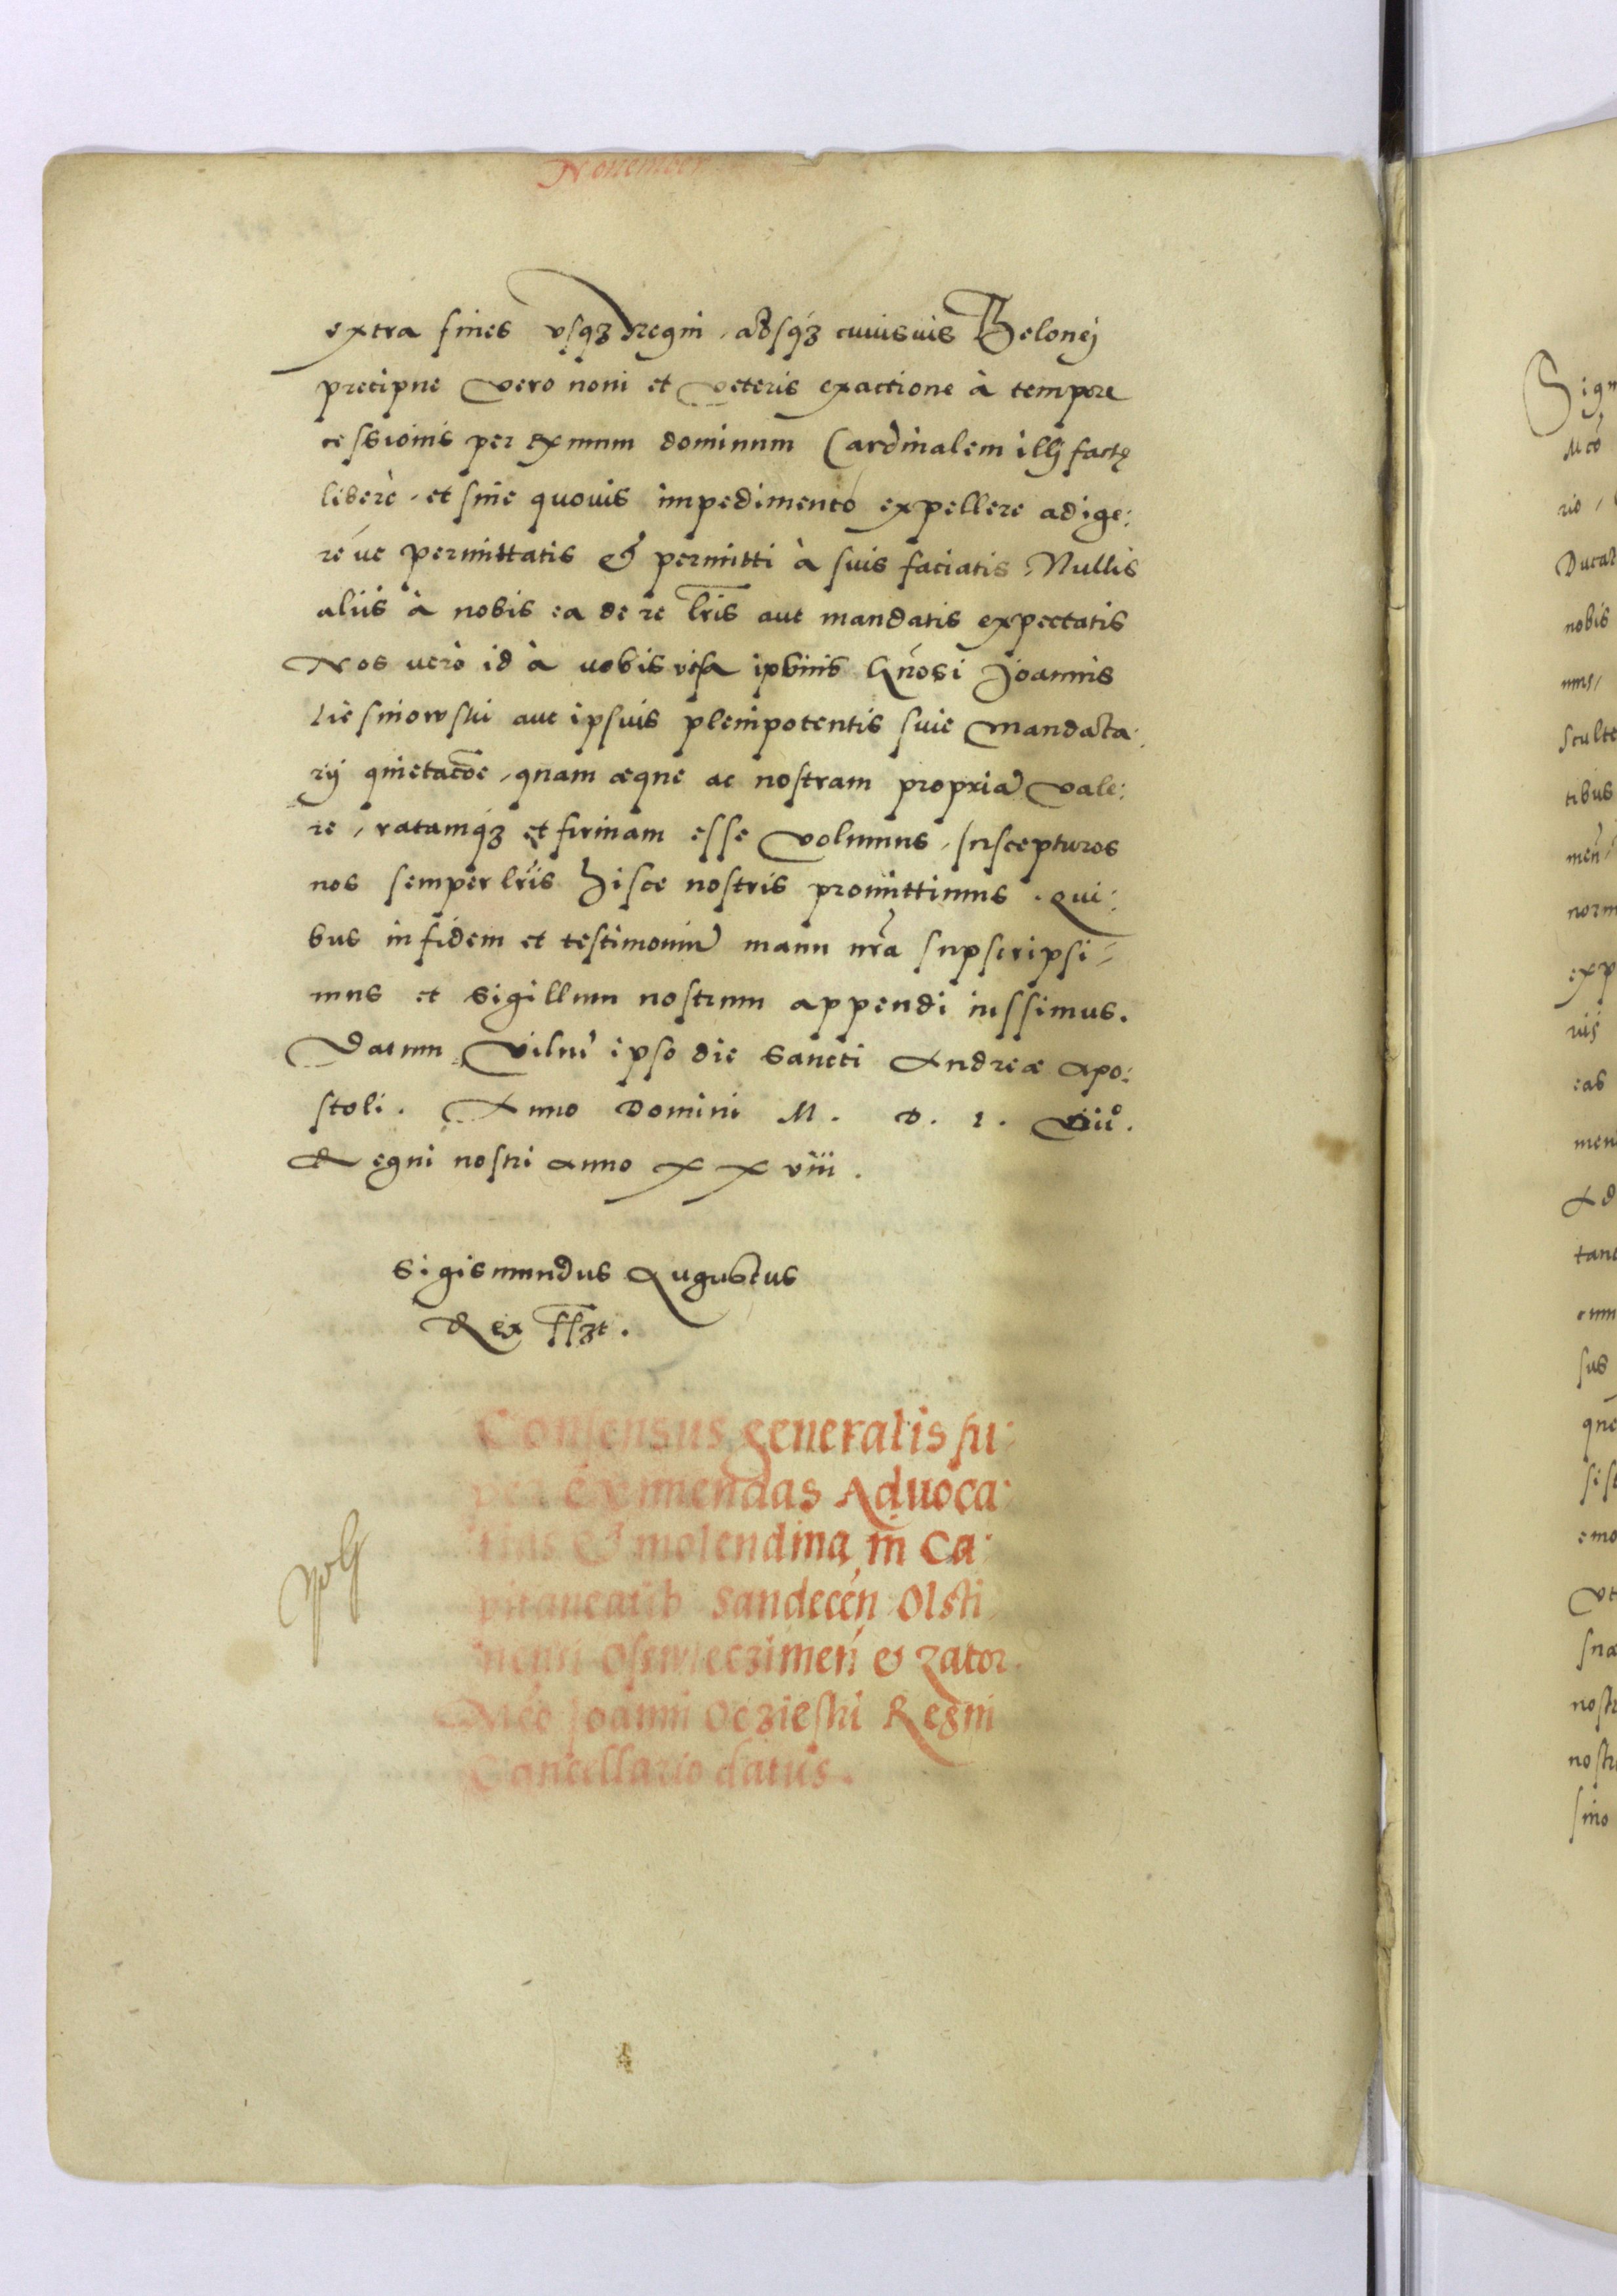 November
extra fines vsqꝫ regni, absqꝫ cuiusuis Thelonej
precipue vero noui et veteris exactione à tempore
cessionis per Exmum dominum Cardinalem illi factę
liberè, et sine quouis impedimento expellere adige:
réue permittatis & permitti à suis faciatis, Nullis
aliis à nobis ea de re lr̃is aut mandatis expectatis
Nos uerò id à uobis visa ipsius Gn̄osi Joannis
aut ipsius plenipotentis siue Mandata:
rij quietacõe, quam æque ac nostram propriã vale:
re, ratamqꝫ et firmam esse volumus, suscepturos
nos semper lr̃is hisce nostris promittimus. Qui:
bus in fidem et testimoniũ manu nr̃a supscripsi-
mus et sigillum nostrum appendi iussimus.
Datum Vilnę ipso die Sancti Andreæ Apo:
stoli. Anno Domini M. D. L viiº.
Regni nostri Anno XXviii.
Sigismundus Augustus
Rex sszt.
Consensus generalis su:
per eximendas Aduoca:
tias & molendina in Ca:
pitaneatib Sandeceń Olsti
neń Oswieczimeń & Zator
Mco Joanni Oczieski Regni
Cancellario datus.
Sigis
Mco
rio,
Ducat
nobis
Sculte
tibus
meń
norm
exp
uis
eas
men
Ad
tanc
omn
sus
que
sis
emo
vt
sua
nostr
nostr
simo